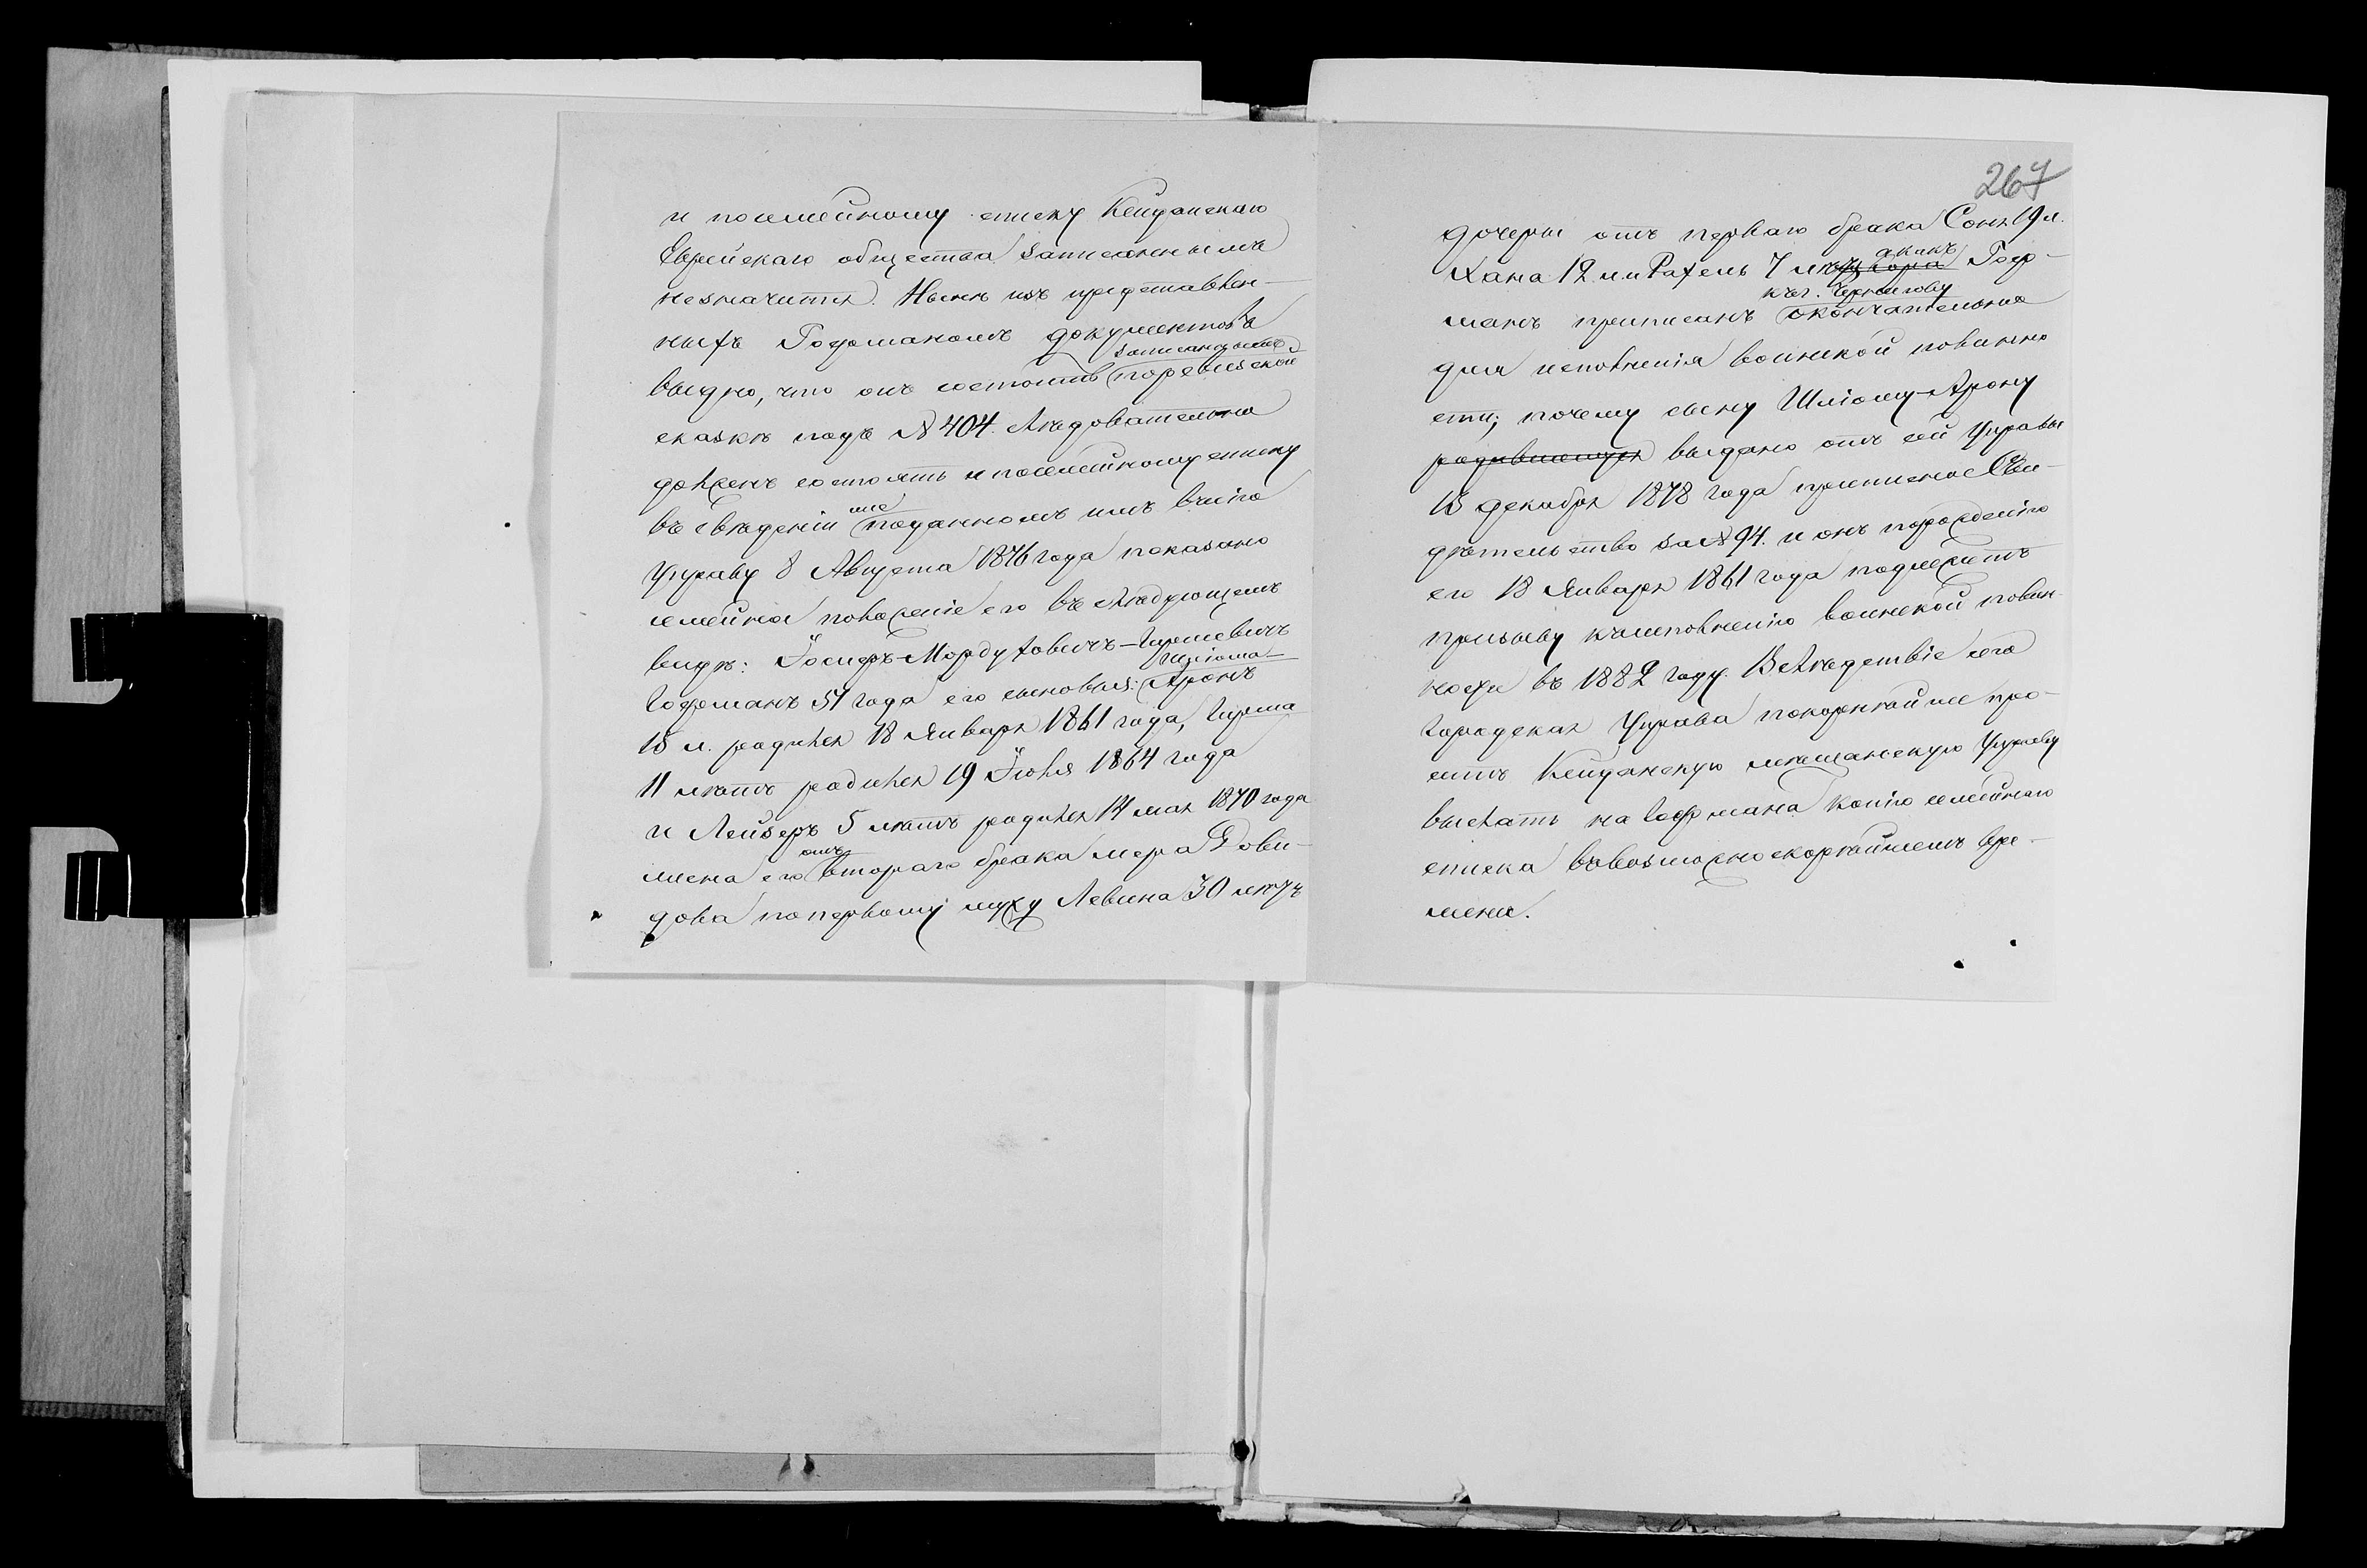 и посемейному списку Кейданскаго
Еврейскаго общества записаннымъ
незначится. Нынѣ изъ представлен-
ныхъ Гофманомъ документовъ
записаннымъ
видно, что онъ состоитъ поревизской
сказкѣ подъ № 404. Слѣдовательно
долженъ состоять и посемейному списку
же
въ свѣденіи поданномъ имъ въ сію
Управу 8 Августа 1876 года показано
семейное положеніе его въ слѣдующемъ
видѣ: Іосифъ-Мордуховичъ-Гиршевичъ
Шліома-
Гофманъ 51 года его сыновья: Аронъ
15 л. родился 18 Января 1861 года, Гирша
11 лѣтъ родился 19 Іюля 1864 года
и Лейзеръ 5 лѣтъ родился 14 мая 1870 года
отъ
жена его втораго брака Мера Дови-
дова по первому мужу Левина 30 лѣтъ
267
дочери отъ перваго брака Соня 19 л.
а какъ
Хана 12 л. и Рахель 7 лѣтъ Гоф-
къ г. Чернигову
манъ приписанъ окончательно
для исполненія воинской повинно
сти, почему сыну Шліому-Арону
родившемуся выдано отъ сей Управы
13 декабря 1878 года приписное Сви-
дѣтельство за № 94. и онъ порожденію
его 18 Января 1861 года подлежитъ
призыву къисполненію воинской повин-
ности въ 1882 году. Вслѣдствіе сего
Городская Управа покорнѣйше про-
ситъ Кейданскую мѣщанскую Управу
выслать на Гофмана копію семейнаго
списка въвозможно скорѣйшемъ вре-
мени.